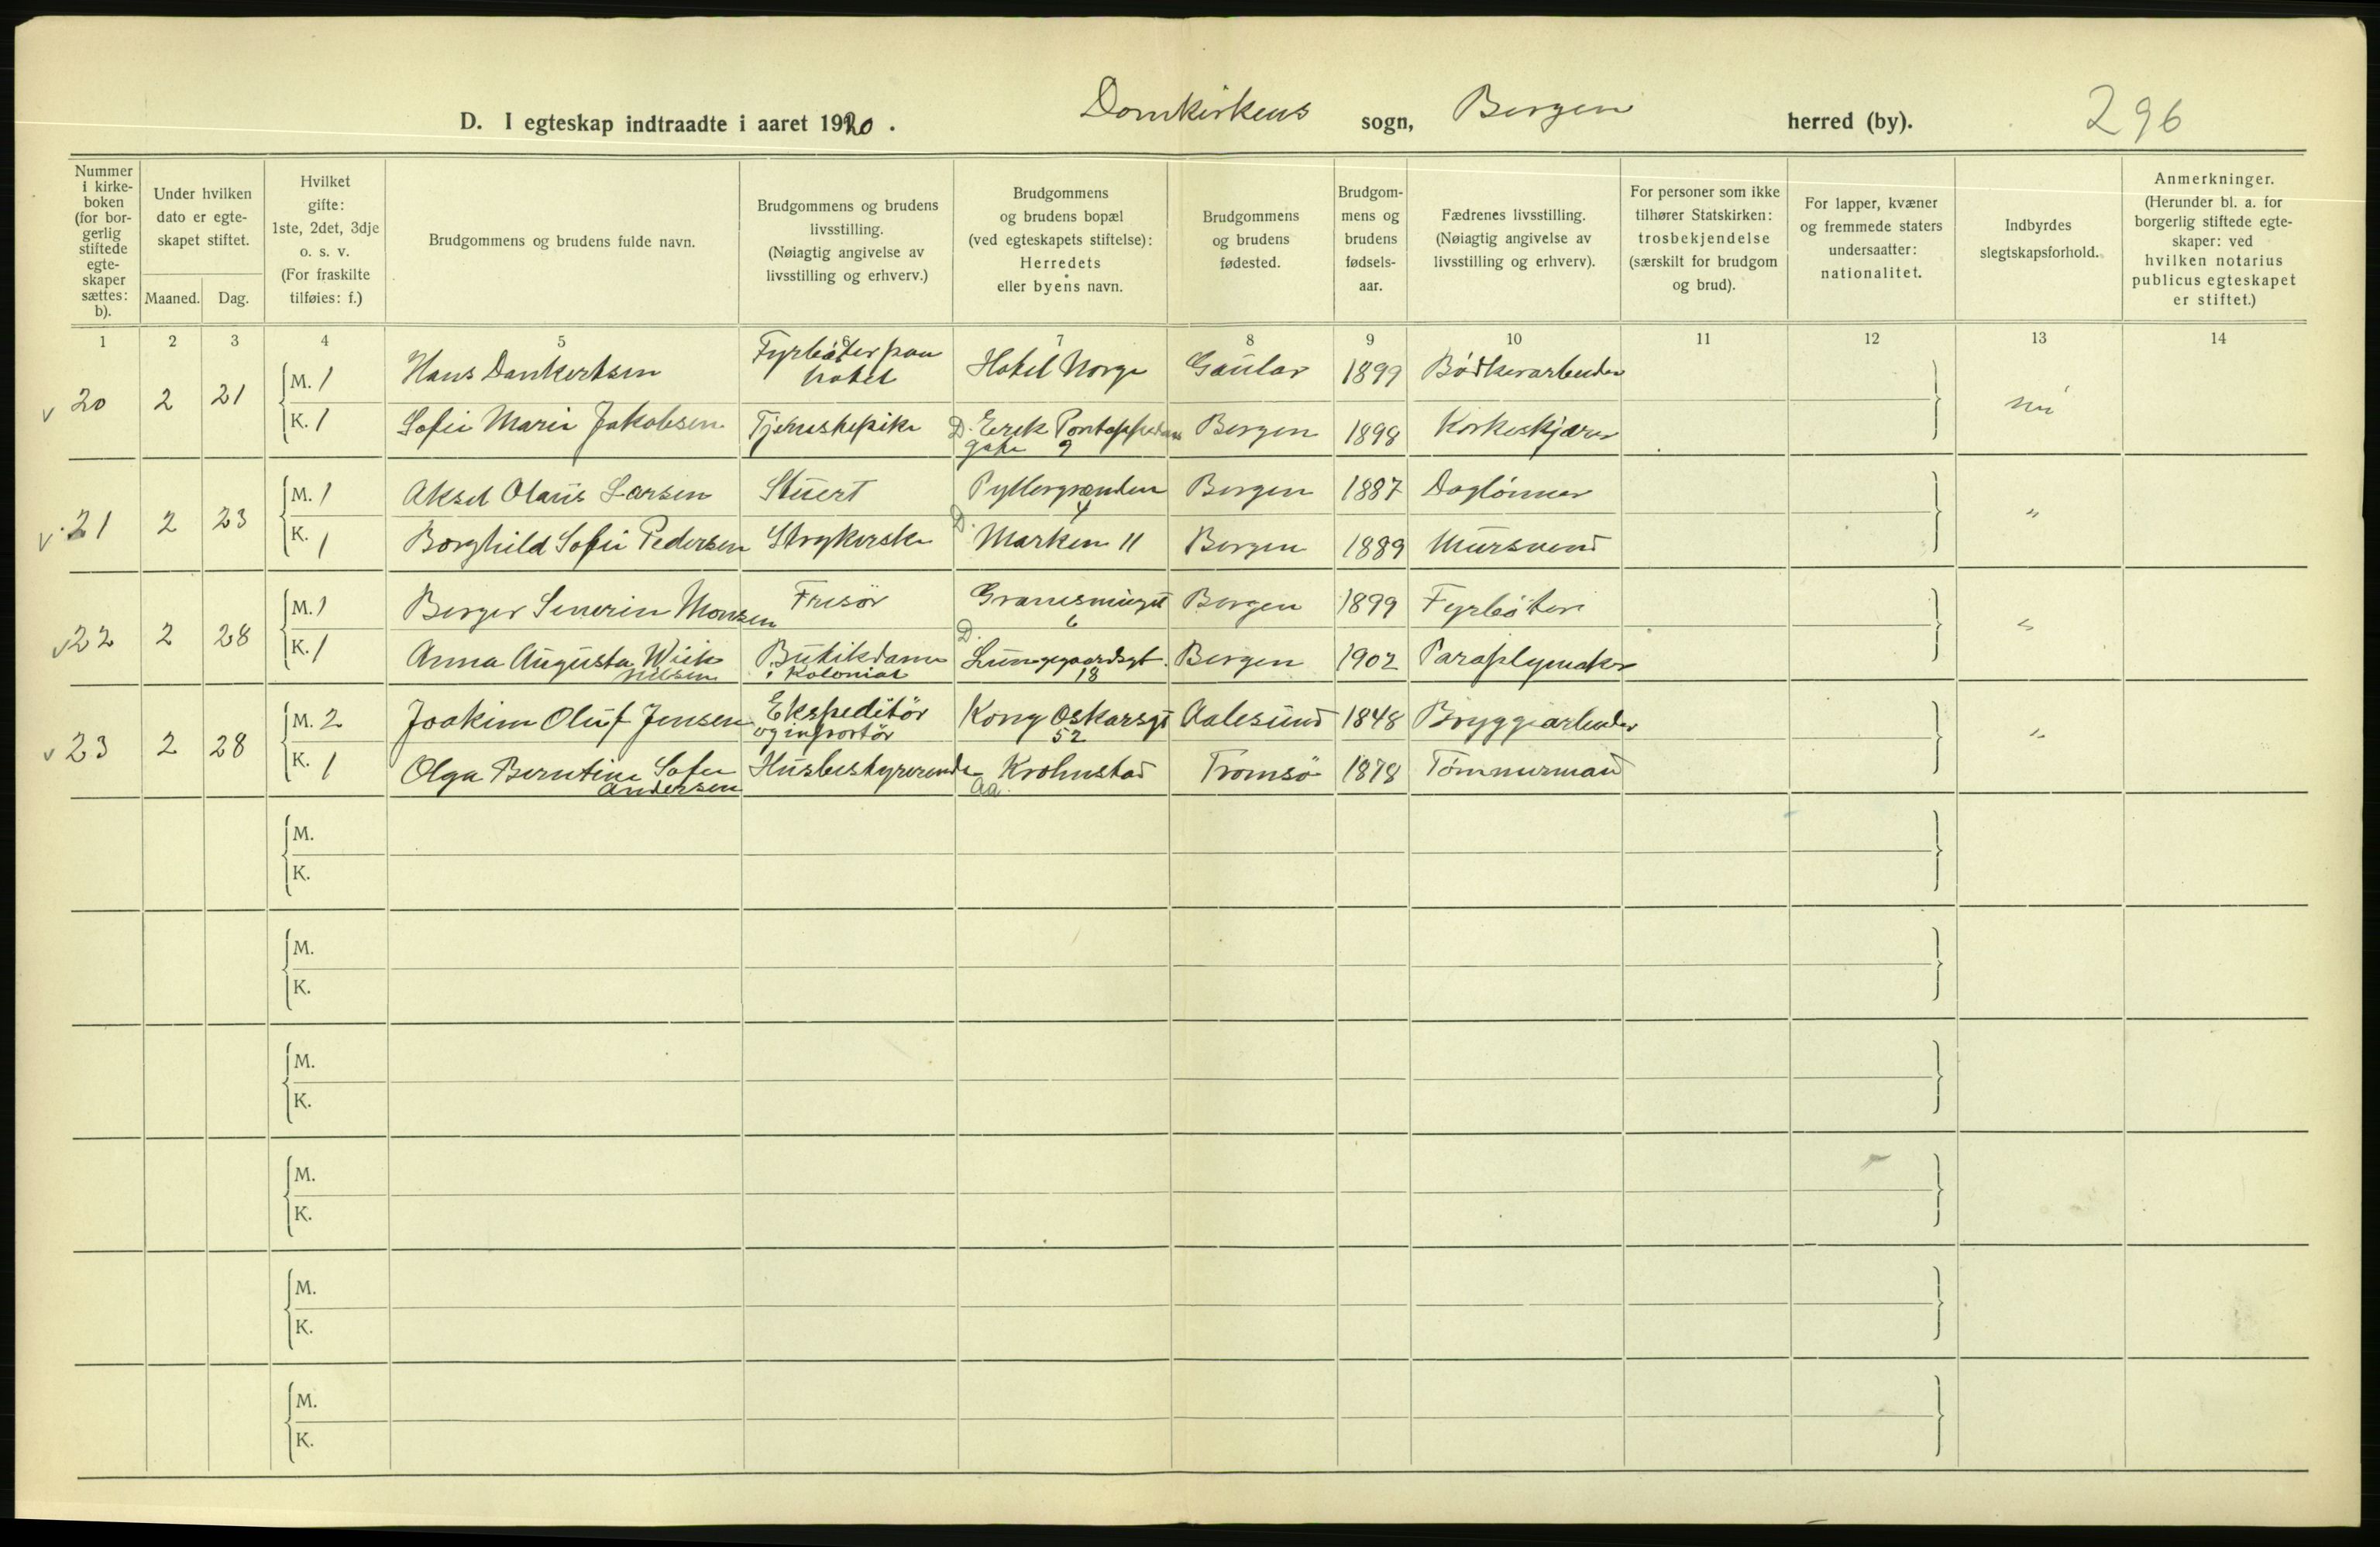 D. I egteskap indtraadte i aaret 1920. Domkirkens sogn, Bergen herred (by). 296
Nummer i kirkeboken (for borgerlig stiftede egteskaper sættes: b).
Under hvilken dato er egteskapet stiftet.
Maaned. Dag.
Hvilket gifte: 1ste, 2det, 3dje o. s. v. (For fraskilte tilføies: f.)
Brudgommens og brudens fulde navn.
Brudgommens og brudens livsstilling. (Nøiagtig angivelse av livsstilling og erhverv.)
Brudgommens og brudens bopæl (ved egteskapets stiftelse): Herredets eller byens navn.
Brudgommens og brudens fødested.
Brudgommens og brudens fødselsaar.
Fædrenes livsstilling. (Nøiagtig angivelse av livsstilling og erhverv).
For personer som ikke tilhører Statskirken: trosbekjendelse (særskilt for brudgom og brud).
For lapper, kvæner og fremmede staters undersaatter: nationalitet.
Indbyrdes slegtskapsforhold.
Anmerkninger. (Herunder bl. a. for borgerlig stiftede egteskaper: ved hvilken notarius publicus egteskapet er stiftet.)
1 2 3 4 5 6 7 8 9 10 11 12 13 14
v 20 2 21 M. 1 Hans Dankertsen Fyrbøter paa hotel Hotel Norge Gaular 1899 Bødkerarbeider nei
K. 1 Sofie Marie Jakobsen Tjenestepike D. Erik Pontoppidans gate 9 Bergen 1898 Korkeskjærer
v 21 2 23 M. 1 Aksel Olaus Larsen Stuert Pyttergrænden 4 Bergen 1887 Daglønner "
K. 1 Borghild Sofie Pedersen Strykerske D. Marken 11 Bergen 1889 Mursvend
v 22 2 28 M. 1 Berger Severin Monsen Frisör 6 Bergen 1899 Fyrbøter "
K. 1 Anna Augusta Wiik Nilsen Butikdame i kolonial D. Lungegaardsgt. 18 Bergen 1902 Paraplymaker
v 23 2 28 M. 2 Joakim Oluf Jensen Ekspeditör og inportör Kong Oskarsgt 52 Aalesund 1848 Bryggearbeider "
K. 1 Olga Berntine Sofie Andersen Husbestyrerinde Aa. Krohnstad Tromsö 1878 Tømmermand
M.
K.
M.
K.
M.
K.
M.
K.
M.
K.
M.
K.